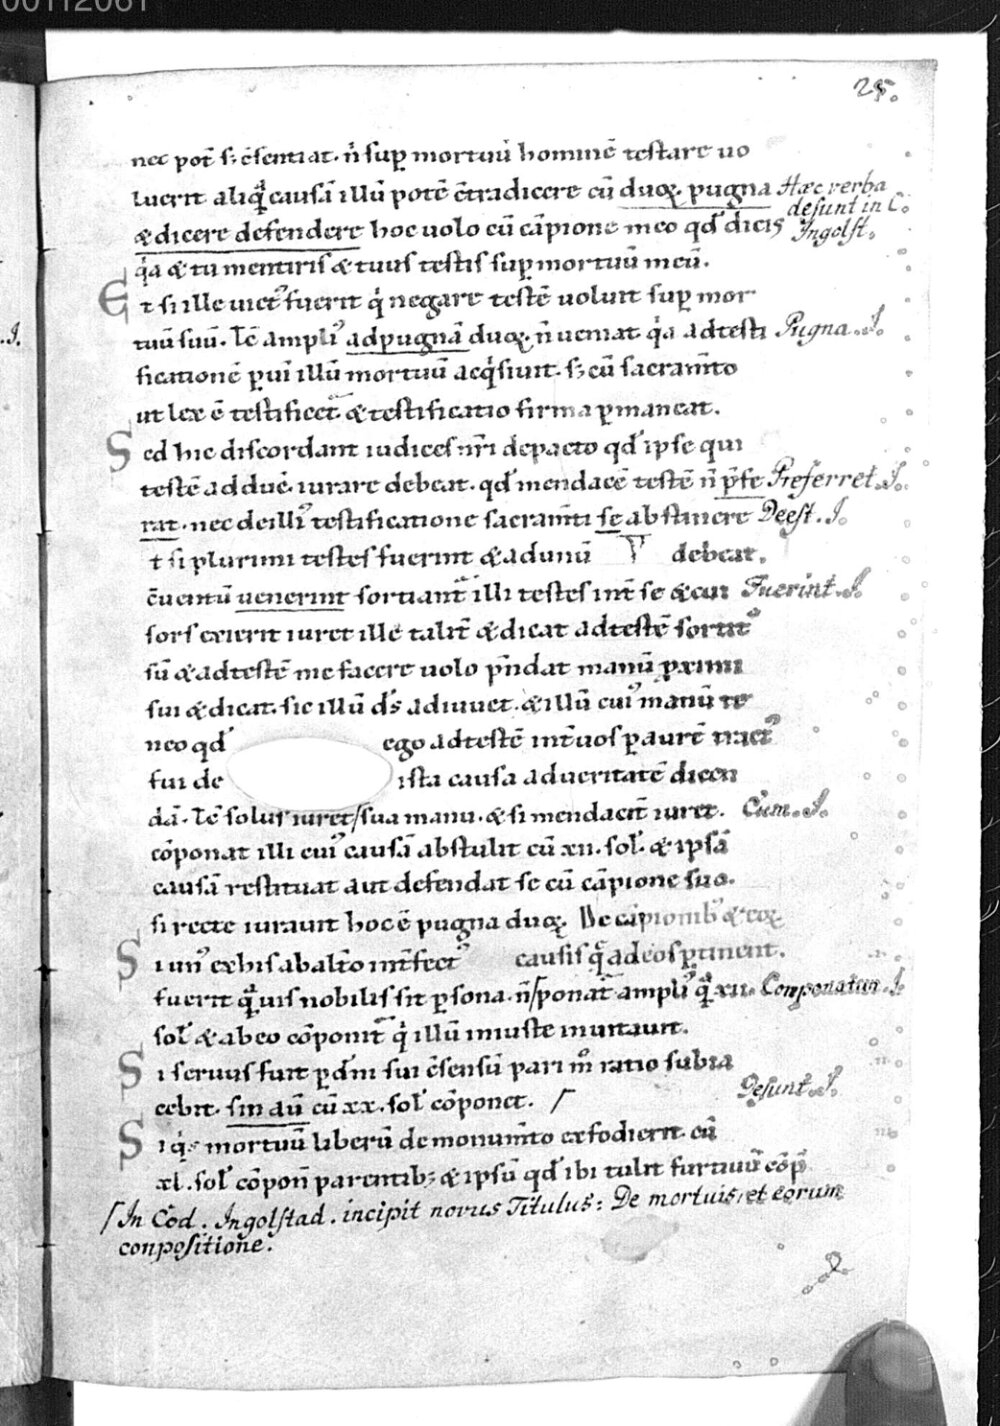 25.
nec potẽ s; c̃sentiat. ñ sup mortuũ hominẽ testare uo
luerit aliq̃ causã illũ potẽ c̃tradicere cũ duoꝝ pugna Hæc verba
desunt in C.
& dicere defendere hoc uolo cũ cãpione meo qd̃ dicis Ingolst.
q̇a & tu mentiris & tuus testis sup mortuũ meũ.
Et si ille uict᾽ fuerit q̇ negare testẽ uoluit sup mor
tuũ suũ. Tc̃ ampli᾽ ad pugnã duoꝝ ñ ueniat q̇a ad testi Pugna. I.
ficationẽ p̱ ui illũ mortuũ acq̇siuit. s; cũ sacram̃to
ut lex ẽ testificet̃ & testificatio firma p̱maneat.
Sed hic discordant iudices nr̃i de pacto qd̃ ipse qui
testẽ adduc̃. iurare debeat. qd̃ mendacẽ testẽ ñ p̃fe Preferret. I.
rat. nec de illi᾽ testificatione sacram̃ti se abstinere Deest. I.
t si plurimi testes fuerint & ad unũ debeat.
c̃uentũ uenerint sortiant̃ illi testes int̃ se & cui Fuerint. I.
sors exierit iuret ille talit̃ & dicat ad testẽ sortit᾽
sũ & ad testẽ me facere uolo p̃ndat manũ p̱ximi
sui & dicat. sic illũ d̃s adiuuet. & illũ cui᾽ manũ te
neo qd̃ ego ad testẽ int̃ uos p̱ aurẽ tract᾽
fui de ista causa ad ueritatẽ dicen
dã. Tc̃ solus iuret/sua manu. & si mendacit̃ iuret. Cum. I.
cõponat illi cui᾽ causã abstulit cũ xii. sol̃. & ipsã
causã restituat aut defendat se cũ cãpione suo.
si recte iurauit hoc ẽ pugna duoꝝ De cãpionib᾽ & eoꝝ
Si un᾽ ex his ab alt̃o int̃fect᾽ causis q̃ ad eos p̱tinent.
fuerit q̃uis nobilis sit p̱sona. ñ/ponat̃ ampli᾽ q̃ xii. Conponatur. I.
sol̃ & ab eo cõponit̃ q̇ illũ iniuste inuitauit.
Si seruus fuit p̱ dñi sui c̃sensũ pari m̊ ratio subia
Desunt. I.
cebit. sin aũ cũ xx. sol̃ cõponet. /
Si q̇s mortuũ liberũ de monum̃to exfodierit. cũ
xl. sol̃ cõpoñ parentib; & ipsũ qd̃ ibi tulit furtiuũ cõp̃
/In Cod. Ingolstad. incipit novus Titulus: De mortuis, et eorum
conpositione.